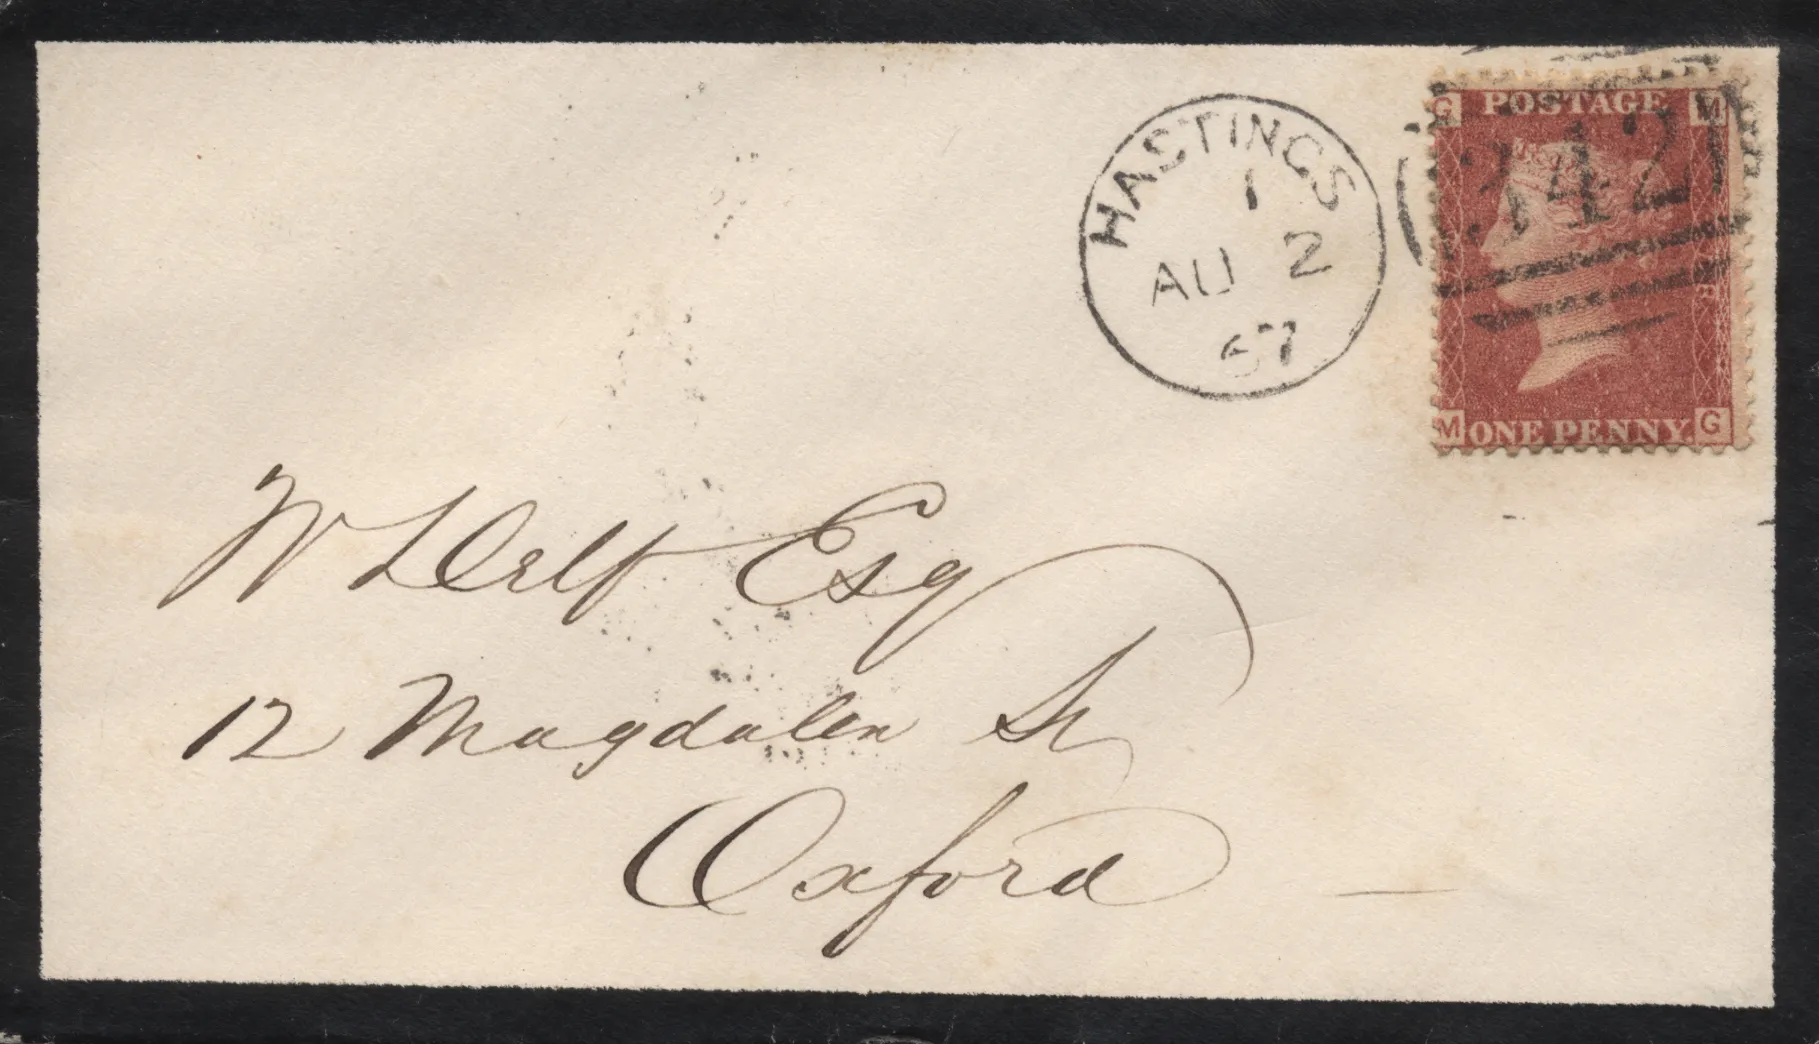 G POSTAGE M
342
HASTINGS
1
AU 2
67
M ONE PENNY. G
W Delf Esq
12 Magdalen St
Oxford